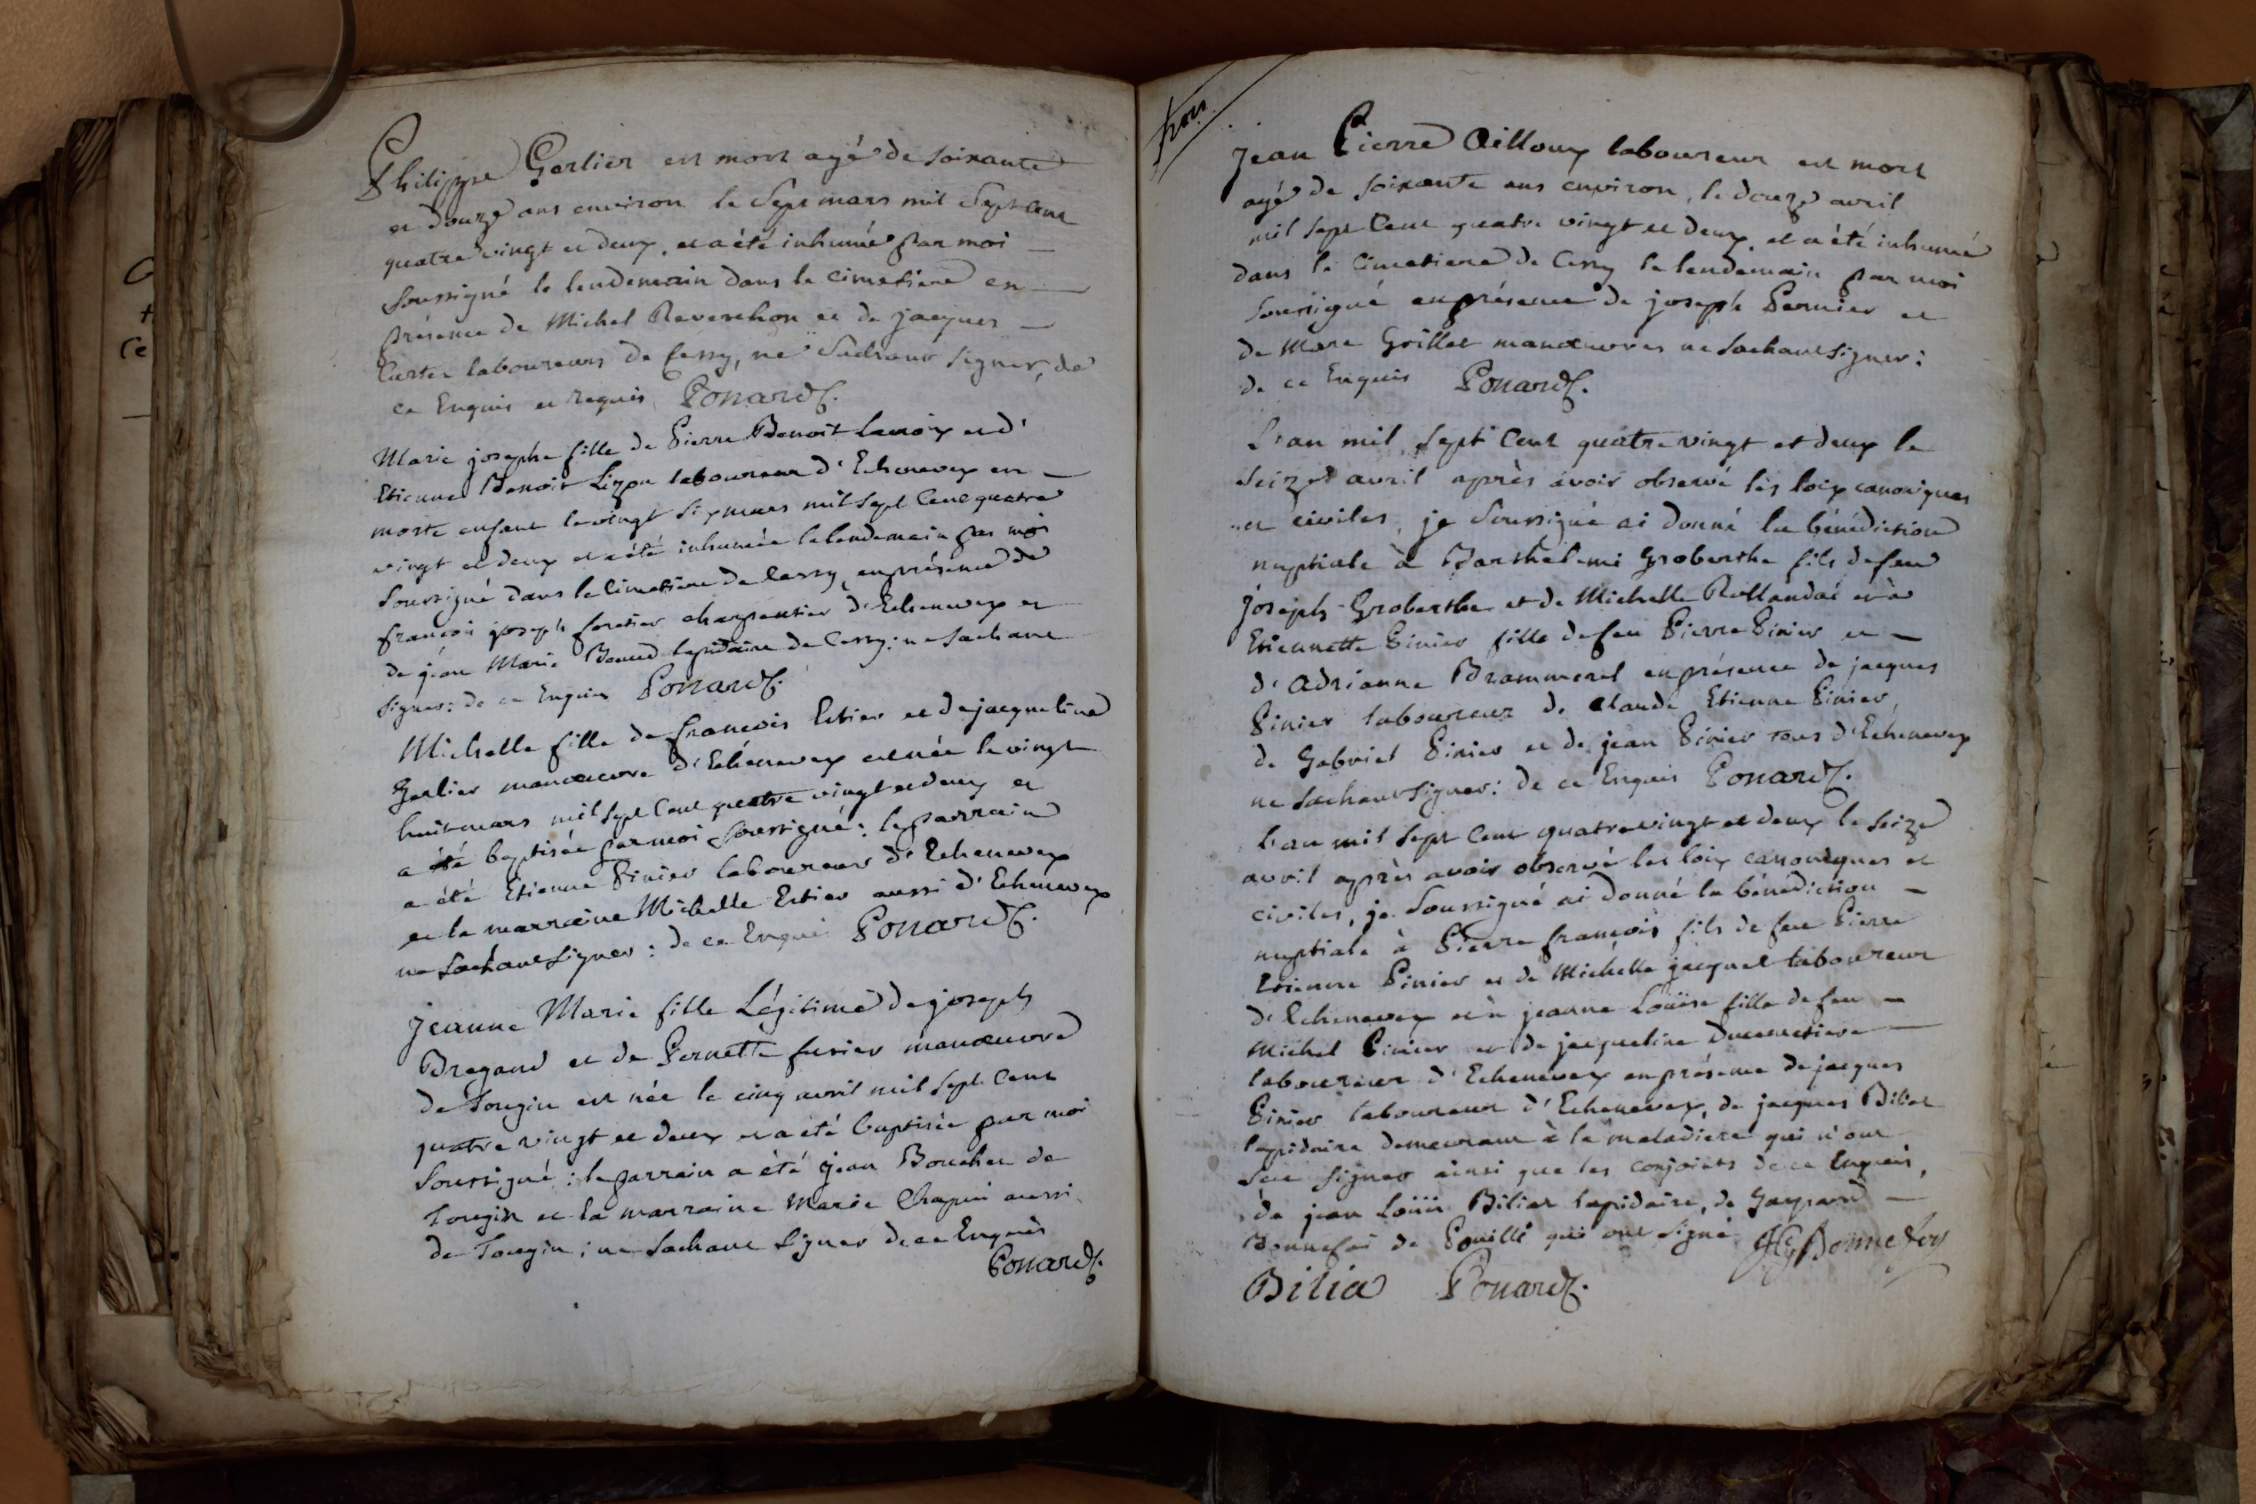 Philippe Gerlier est mort agé de soixante
et douze ans environ le sept mars mil sept cent
quatre vingt et deux, et a été inhumé par moi
soussigné le lendemain dans le cimetiere en
présence de Michel Reverchon et de jacques
laboureurs de Cessy, ne sachant signer, de
ce Enquis et requis Ponard C.
Marie josephe fille de Pierre Benoit et d'
Etienne Benoit laboureur d'Echenevex est
morte enfant le vingt six mars mil sept cent quatre
vingt et deux et a été inhumée le lendemain par moi
soussigné dans le cimetiere de Cessy, en présence de
françois joseph charpentier d'Echenevex et
de jean Marie lapidaire de Cessy: ne sachant
signer: de ce Enquis Ponard C.
Michelle fille de françois Estier et de jacqueline
Gerlier manoeuvre d'Echenevex est née le vingt
huit mars mil sept cent quatre vingt et deux et
a été baptisée par moi soussigné: le parrain
a été Etienne Pinier laboureur d'Echenevex
et la marraine Michelle Estier aussi d'Echenevex
ne sachant signer: de ce Enquis Ponard C.
Jeanne Marie fille Légitime de joseph
Bregand et de Pernette manoeuvre
de Tougin est née le cinq avril mil sept cent
quatre vingt et deux et a été baptisée par moi
soussigné: le parrain a été jean Bouchet de
Tougin et la marraine Marie Chapui aussi
de Tougin; ne sachant signer de ce Enquis
Ponard C.
Jean Pierre Ailloux laboureur est mort
agé de soixante ans environ, le douze avril
mil sept cent quatre vingt et deux, et a été inhumé
dans le cimetiere de Cessy le lendemain par moi
soussigné en présence de joseph Pernier et
de Marc Grillet manoeuvres ne sachant signer:
de ce Enquis Ponard C.
L'an mil sept cent quatre vingt et deux le
seize avril après avoir observé les loix canoniques
et civiles, je soussigné ai donné la bénédiction
nuptiale à Barthelemi Groberthe fils de feu
joseph Groberthe et de Michelle et à
Etiennette Pinier fille de feu Pierre Pinier et
d'Adrianne Brammerel en présence de jacques
Pinier laboureur de Claude Etienne Pinier
de Gabriel Pinier et de jean Pinier tous d'Echenevex
ne sachant signer: de ce Enquis Ponard C.
L'an mil sept cent quatre vingt et deux le seize
avril après avoir observé les loix canoniques et
civiles, je soussigné ai donné la bénédiction
nuptiale à Pierre françois fils de feu Pierre
Etienne Pinier et de Michelle jacquet laboureur
d'Echenevex et à jeanne Louise fille de feu
Michel Pinier et de jacqueline Ducemetiere
laboureur d'Echenevex en présence de jacques
Pinier laboureur d'Echenevex, de jacques Biliat
lapidaire demeurant à la maladiere qui n'ont
sçu signer ainsi que les conjoints de ce Enquis,
de jean Loüis Biliat lapidaire, de Gaspard
Bonnefoi de Pouilli qui ont signé JG Bonnefoy
Bilia Ponard C.